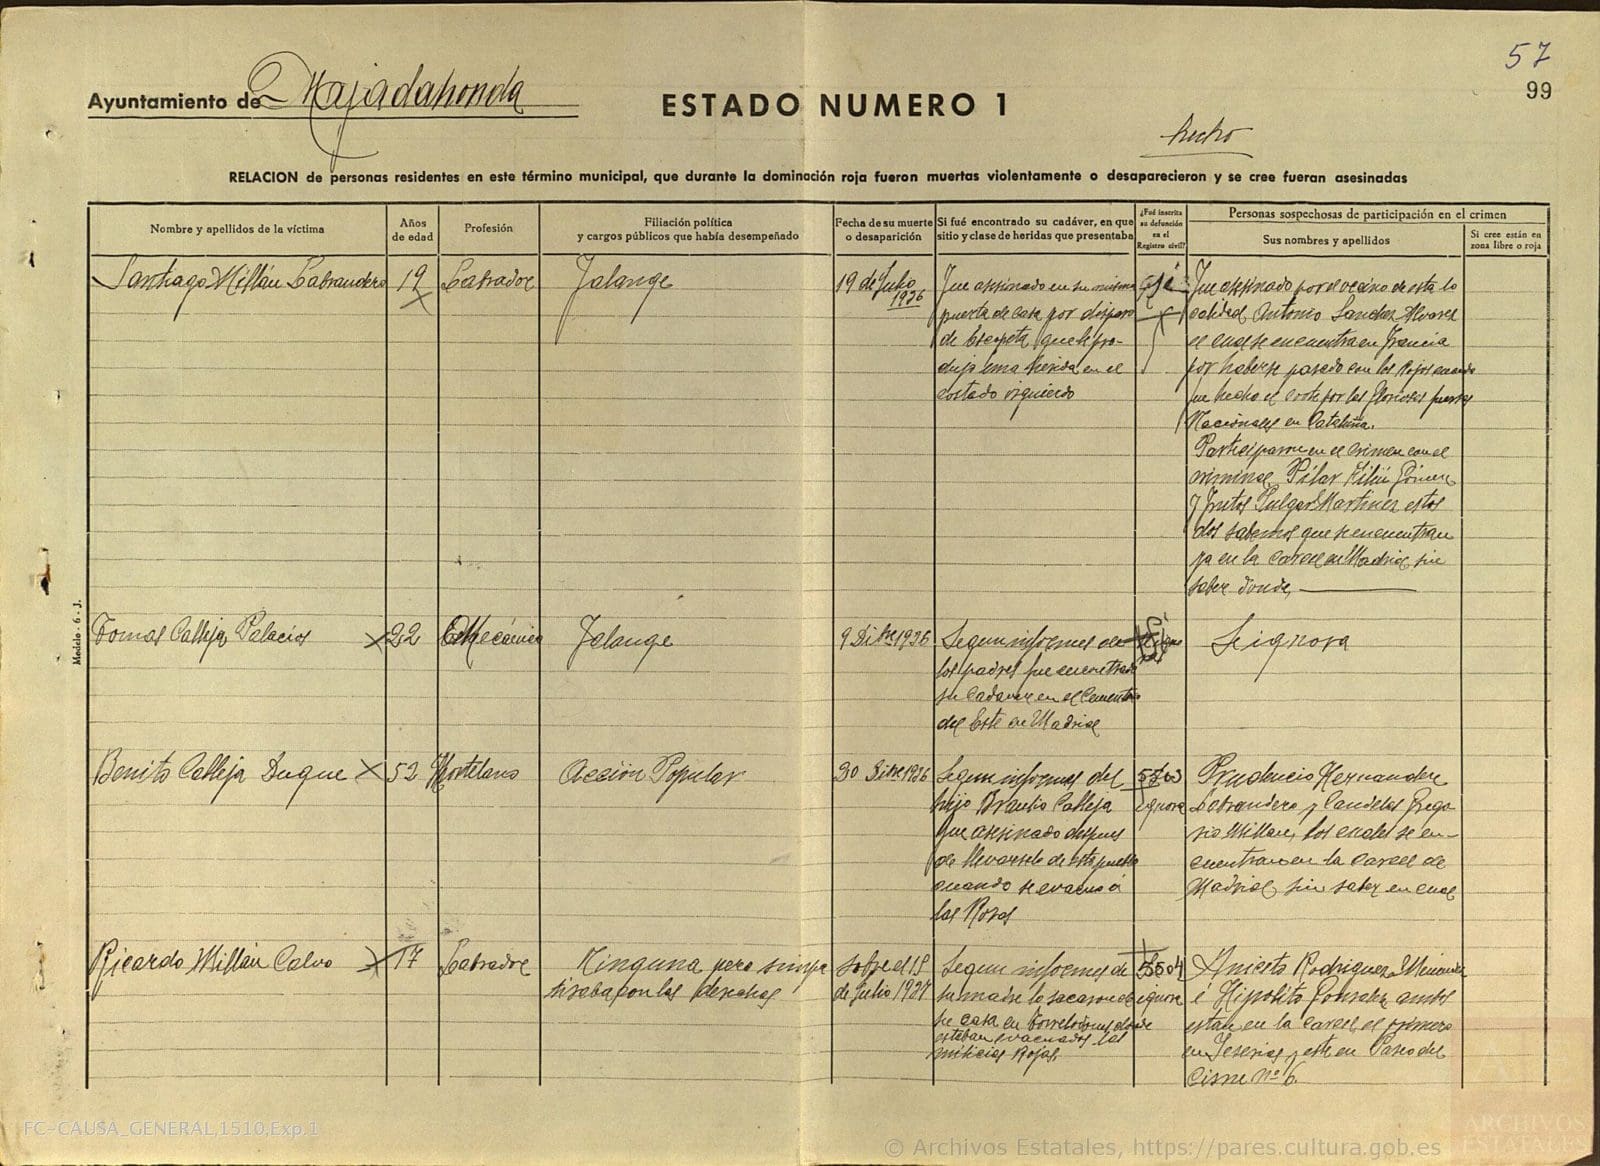 57
99
Ayuntamiento de Majadahonda
ESTADO NUMERO 1
hecho
RELACION de personas residentes en este término municipal, que durante la dominación roja fueron muertas violentamente o desaparecieron y se cree fueran asesinadas
Nombre y apellidos de la víctima
Años
de edad
Profesión
Filiación política
y cargos públicos que había desempeñado
Fecha de su muerte
o desaparición
Si fué encontrado su cadáver, en que
sitio y clase de heridas que presentaba
¿Fué inscrita
su defunción
en el
Registro civil?
Personas sospechosas de participación en el crimen
Sus nombres y apellidos
Si cree están en
zona libre o roja
Santiago Millán Labrandero
19
Labrador
Falange
19 de Julio
1936
Fue asesinado en su misma
puerta de casa por disparo
de Escopeta que le pro-
dujo una herida en el
costado izquierdo
Si
Fue asesinado por el vecino de esta lo
calidad Antonio Sanchez Alvarez
el cual se encuentra en Francia
por haberse pasado con los Rojos cuando
fue hecho el corte por las Gloriosas fuerzas
Nacionales en Cataluña.
Participaron en el crimen con el
criminal Pilar
y Frutos Pulgar Martinez estos
dos sabemos que se encuentran
ya en la carcel en Madrid sin
saber donde,
Tomas Calleja Palacios
22
Mecánico
Falange
9 Dibre 1936
Segun informes de
los padres fue encontrado
su Cadaver en el Cementerio
del Este en Madrid
Se ignora
Benito Calleja Duque
52
Hortelano
Acción Popular
30 1936
Segun informes del
hijo Braulio Calleja
fue asesinado despues
de llevarselo de este pueblo
cuando se evacuó a
las Rozas
ignora
Prudencio Hernandez
Labrandero y Candelas Grego
rio Millan, los cuales se en-
cuentran en la carcel de
Madrid sin saber en cual
Ricardo Millán Calvo
17
Labrador
Ninguna pero simpa
tizaba con las derechas
sobre el 15
de Julio 1937
Segun informes de
su madre lo sacaron de
su casa en Torrelodones donde
estaban evacuados las
milicias Rojas
5504
ignora
Aniceto Rodriguez
é Hipolito Gonzalez ambos
estan en la carcel el primero
en Yeserias y este en Paseo del
Cisne Nº 6.
Modelo - 6 - J.
FC-CAUSA_GENERAL,1510,Exp.1
© Archivos Estatales, https://pares.cultura.gob.es
ARCHIVOS
ESTATALES